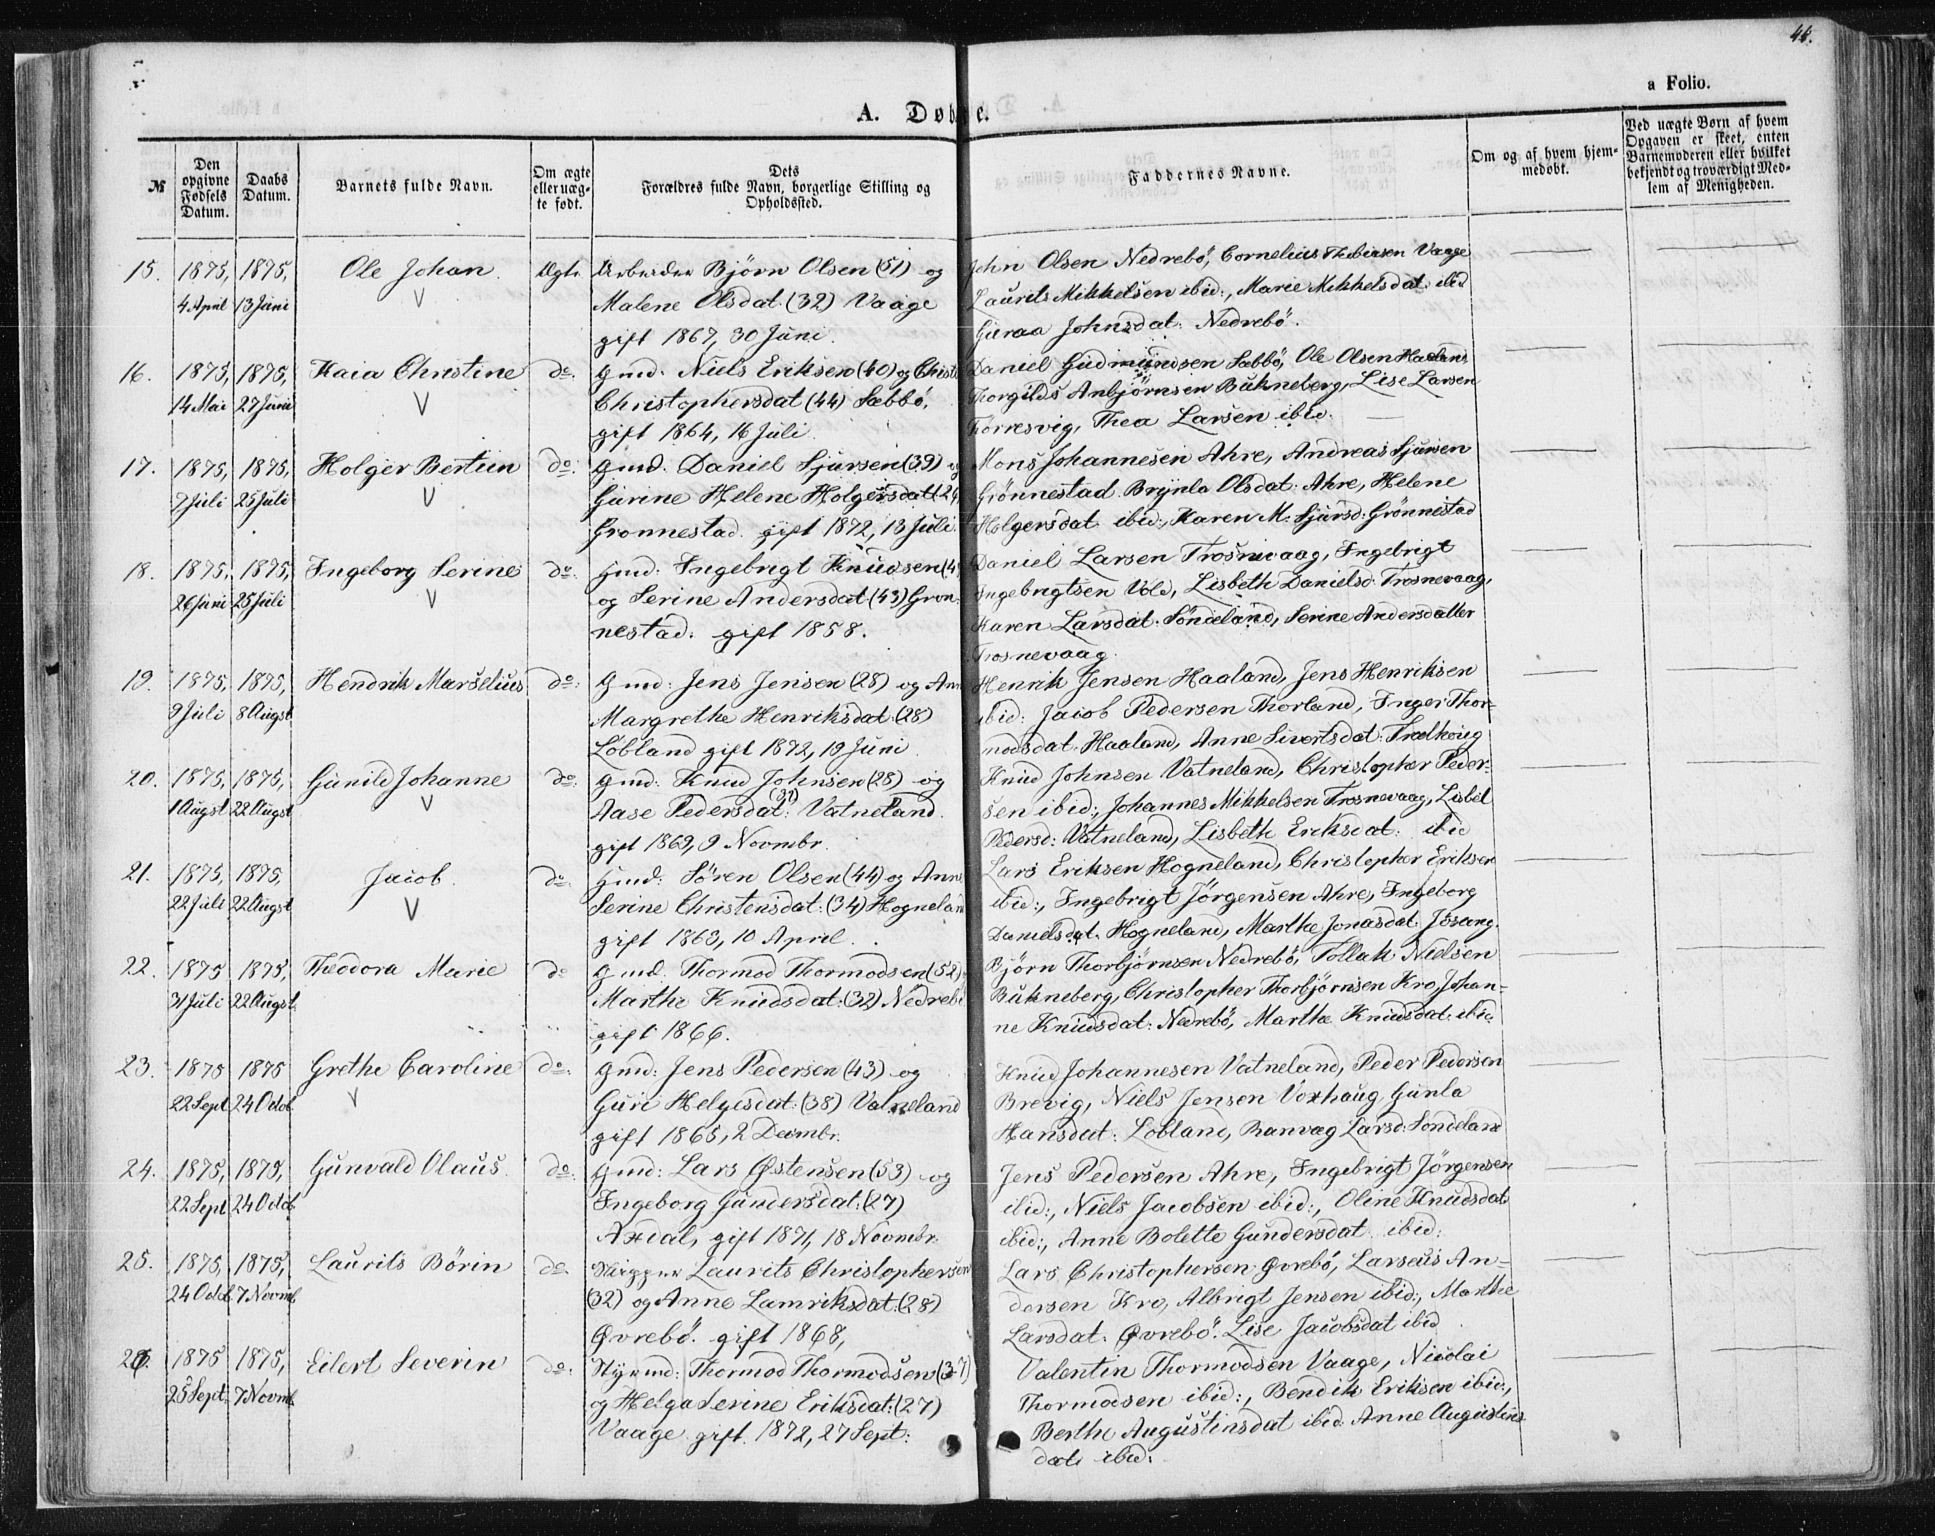 44.
a Folio.
A. Döbte.
№
Den opgivne Fødsels Datum.
Daabs Datum.
Barnets fulde Navn.
Om ægte eller uægte født.
Dets Forældres fulde Navn, borgerlige Stilling og Opholdssted.
Faddernes Navne.
Om og af hvem hjemmedøbt.
Ved uægte Børn af hvem Opgaven er skeet, enten Barnemoderen eller hvilket bekjendt og troværdigt Medlem af Menigheden.
15. 1875, 4 April 1875, 13 Juni Ole Johan Ægte
Arbeider Björn Olsen (51) og
Malene Olsdat. (32) Vaage
gift 1867, 30 Juni.
John Olsen Nedrebö, Cornelius Thobiasen Vaage
Laurits Mikkelsen ibid:, Marie Mikkelsdat. ibid
Guraa Johnsdat: Nedrebö.
16. 1875, 14 Mai 1875, 27 Juni Kaia Christine do.
Gmd: Niels Eriksen (40) og Christi
Christophersdat (44) Sæbbö,
gift 1864, 16 Juli.
Daniel Gudmundsen Sæbbö, Ole Olsen Haaland
Thorgilds Anbjørnsen Bukneberg, Lise Larsen
Torresvig, Thea Larsen ibid.
17. 1875, 7 Juli 1875, 25 Juli Holger Bertin do.
Gmd. Daniel Sjursen (39) og
Gurine Helene Holgersdat (24
Gronnestad. gift 1872, 13 Juli.
Mons Johannesen Ahre, Andreas Sjursen
Grönnestad Brynla Olsdat: Ahre, Helene
Holgersdat ibid:, Karen M. Sjursd: Grönnestad
18. 1875, 26 Juni 1875, 25 Juli Ingeborg Serine do.
Gmd: Ingebrigt Knudsen (4
og Serine Andersdat (43) Gron-
nestad: gift 1858.
Daniel Larsen Trosnevaag, Ingebrigt
Ingebrigtsen Vold, Lisbeth Danielsd: Trosnevaag,
Karen Larsdat: Söndeland, Serine Andersdatter
Trosnevaag.
19. 1875, 9 Juli 1875, 8 Augst Hendrik Marselius do:
Gmd: Jens Jensen (28) og Ann
Margrethe Henriksdat: (28)
Løbland gift 1872, 19 Juni
Henrik Jensen Haaland, Jens Henriksen
ibid: Jacob Pedersen Thorland, Inger Thor-
modsdat. Haaland, Anne Sivertsdat:
20. 1875, 1 Augst 1875, 22 Augst Gunild Johanne do.
Gmd: Knud Johnsen (28) og
Aase Pedersdat: (31) Vatneland.
gift 1869, 9 Novmbr.
Knud Johnsen Vatneland, Christopher Peder-
sen ibid:, Johannes Mikkelsen Trosnevaag, Lisbet
Pedersd: Vatneland, Lisbeth Eriksdat: ibid
21. 1875, 22 Juli 1875, 22 Augst Jacob. do.
Gmd: Sören Olsen (44) og Anne
Serine Christensdat: (34) Hogneland
gift 1863, 10 April.
Lars Eriksen Hogneland, Christopher Eriksen
ibid:, Ingebrigt Jörgensen Ahre, Ingeborg
Danielsdat. Hogneland, Marthe Jonasdat. Jösang.
22. 1875 31 Juli 1875, 22 Augst. Theodora Marie do
Gmd. Thormod Thormodsen (52)
Marthe Knudsdat: (32) Nedrebö
gift 1866.
Björn Thorbjörnsen Nedrebö, Tollak Nielsen
Bukneberg, Christopher Thorbjörnsen Kro, Johan-
ne Knudsdat: Nedrebö, Marthe Knudsdat. ibid.
23. 1875 22 Sept 1875 24 Octob. Grethe Caroline do.
Gmd: Jens Pedersen (43) og
Guri Helgesdat: (38) Vatneland
gift 1865, 2 Decmbr.
Knud Johannesen Vatneland, Peder Pedersen
Brevig, Niels Jensen Voxhaug, Gunla
Hansdat: Løbland, Ranvæg Larsd: Söndeland
24. 1875, 22 Sept 1875, 24 Octob. Gunvald Olaus. do.
Gmd: Lars Østensen (53) og
Ingeborg Gundersdat: (27)
Axdal, gift 1871, 18 Novmbr.
Jens Pedersen Ahre, Ingebrigt Jörgensen
ibid:, Niels Jacobsen ibid:, Oline Knudsdat
ibid:, Anne Bolette Gundersdat ibid:
25. 1875, 24 Octob. 1875, 7 Novmb. Laurits Børin do.
Skipper Laurits Christophersen
(32) og Anne Lamriksdat: (28)
Øvrebö. gift 1868,
Lars Christophersen Øvrebö, Larseus An-
dersen Kro, Albrigt Jensen ibid:, Marthe
Larsdat: Øvrebö. Lise Jacobsdat ibid.
26. 1875 25 Sept. 1875, 7 Novmb. Eilert Severin do.
Styrmd: Thormod Thormodsen (37)
og Helga Serine Eriksdat: (27)
Vaage. gift 1872, 27 Sept:
Valentin Thormodsen Vaage, Nicolai
Thormodsen ibid:, Bendik Eriksen ibid:,
Berthe Augustinsdat ibid. Anne Augustins
dat. ibid: